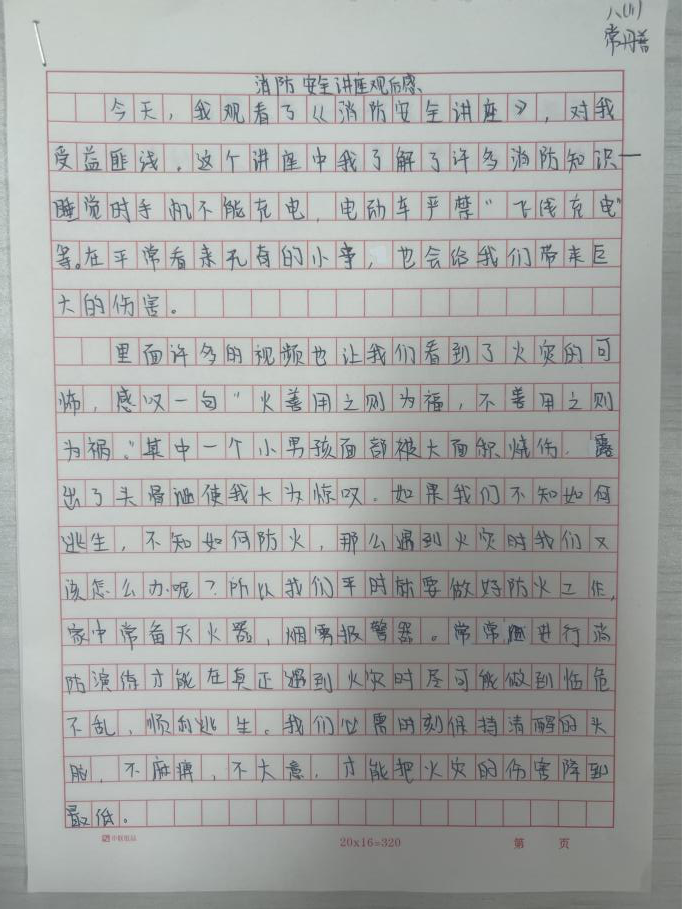 八(1)
常丹善
消防安全讲座观后感
今天，我观看了《消防安全讲座》，对我
受益匪浅。这个讲座中我了解了许多消防知识—
睡觉时手机不能充电，电动车严禁"飞线充电"
等。在平常看来无有的小事，也会给我们带来巨
大的伤害。
里面许多的视频也让我们看到了火灾的可
怖，感叹一句"火善用之则为福，不善用之则
为祸。"其中一个小男孩面部被大面积烧伤，露
出了头骨使我大为惊叹。如果我们不知如何
逃生，不知如何防火，那么遇到火灾时我们又
该怎么办呢？所以我们平时就要做好防火工作，
家中常备灭火器，烟雾报警器。常常进行消
防演练才能在真正遇到火灾时尽可能做到临危
不乱，顺利逃生。我们必需时刻保持清醒的头
脑，不麻痹，不大意，才能把火灾的伤害降到
最低。
20x16=320
第 页